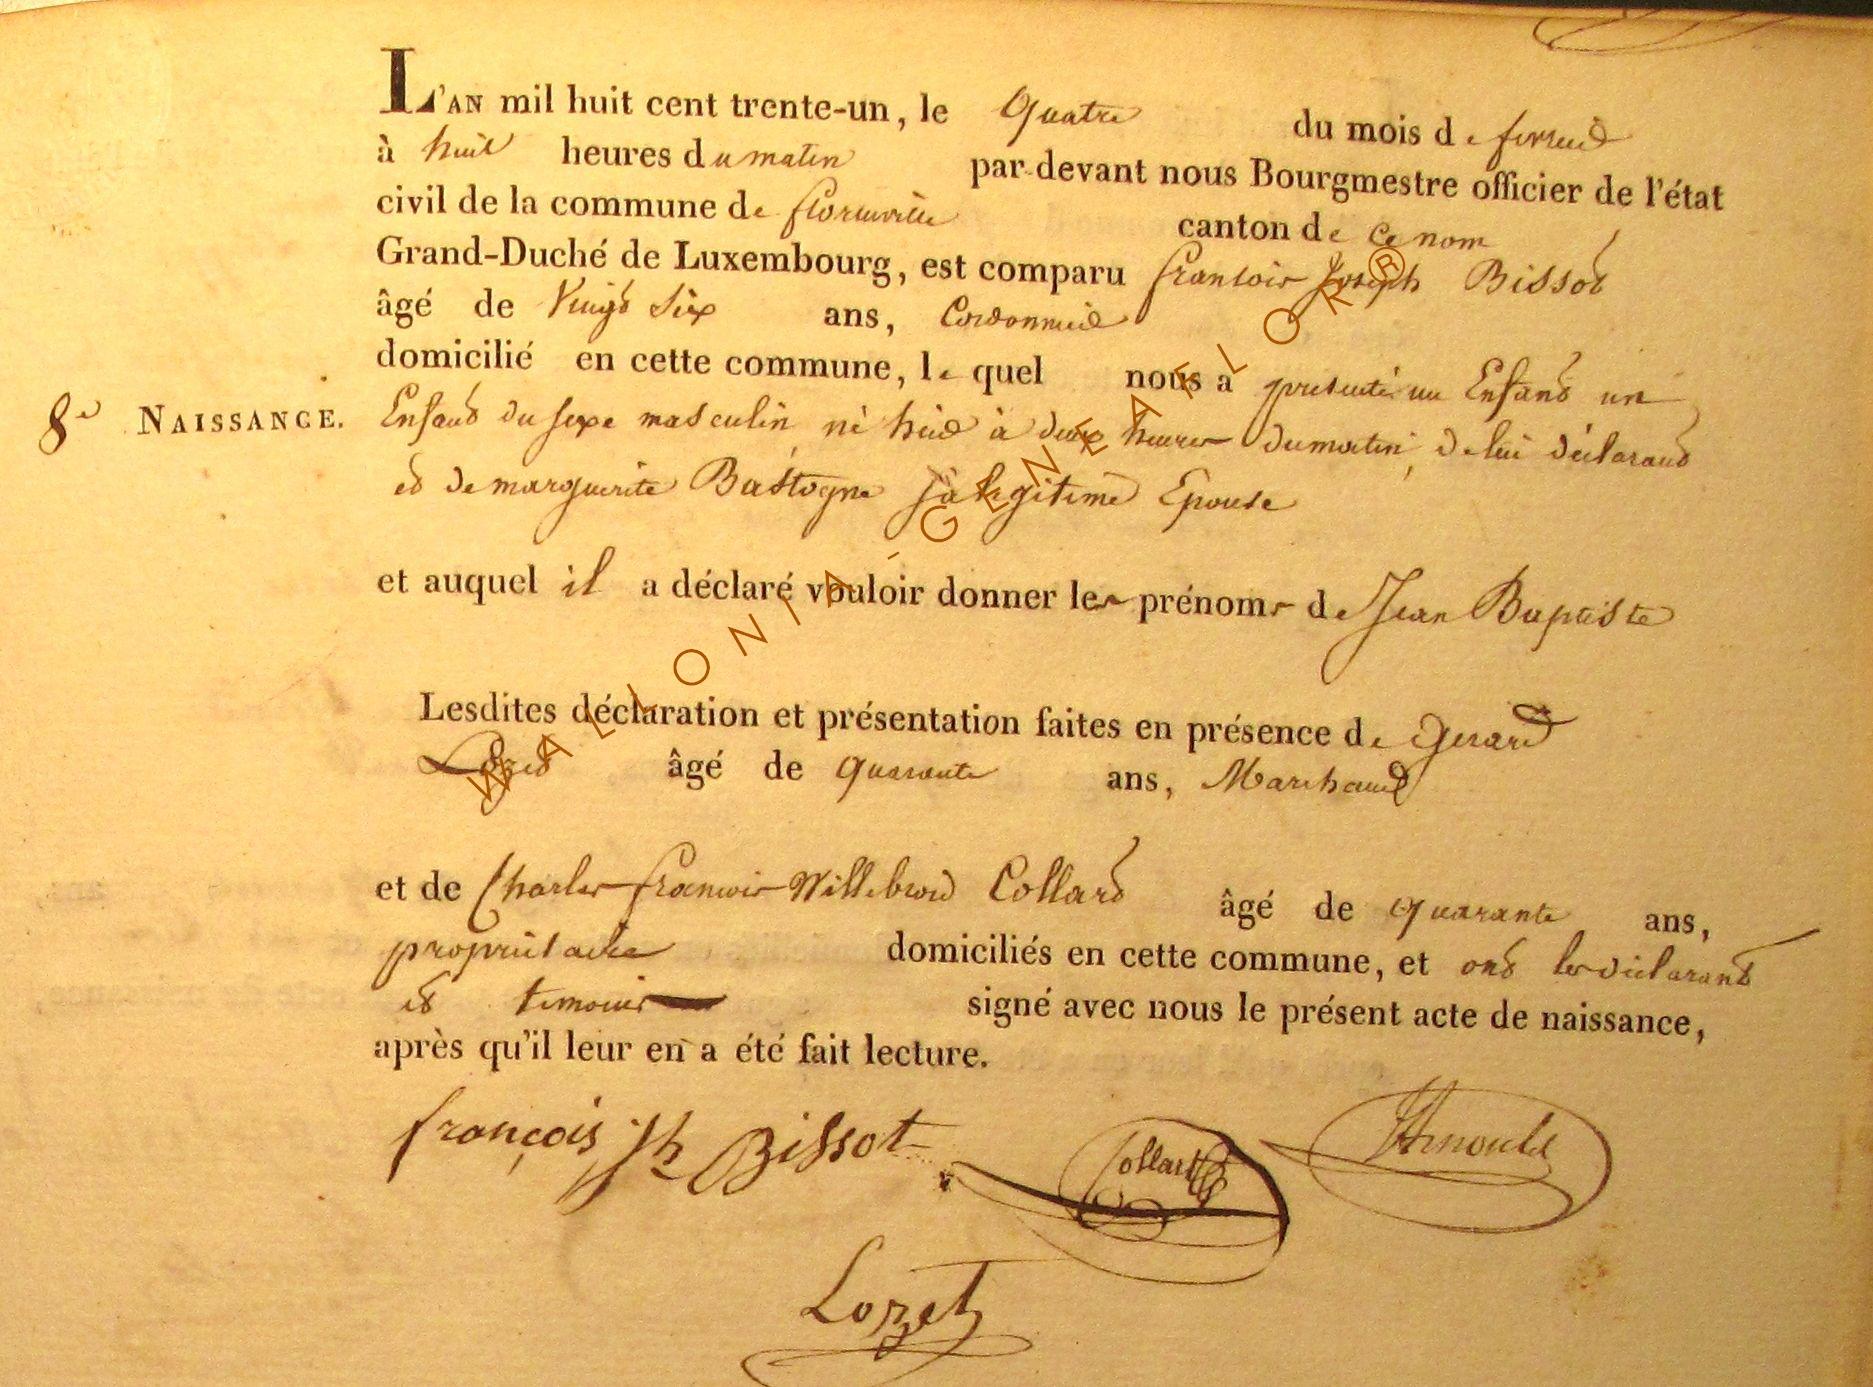 L'AN mil huit cent trente-un, le Quatre du mois de fevrier
à huit heures du matin par-devant nous Bourgmestre officier de l'état
civil de la commune de florenville canton de ce nom
Grand-Duché de Luxembourg, est comparu francois Joseph Bissot
âgé de Vingt Six ans, Cordonnier
domicilié en cette commune, le quel nous a presenté un Enfant un
8e NAISSANCE. Enfant du sexe masculin né hier à deux heures du matin, de lui déclarant
et de marguerite Bastogne sa legitime Epouse
et auquel il a déclaré vouloir donner les prénoms de Jean Baptiste
Lesdites déclaration et présentation faites en présence de Gerard
Lozet âgé de quarante ans, Marchand
et de Charles francois Willebrord Collard âgé de quarante ans,
propriétaire domiciliés en cette commune, et ont les declarant
et temoins signé avec nous le présent acte de naissance,
après qu'il leur en a été fait lecture.
françois Jh Bissot Collard Arnould
Lozet
WALLONIA-GENEAFLOR ®